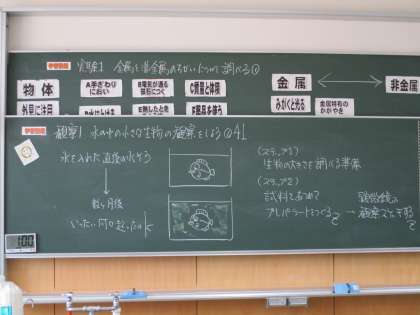 実験1 金属と非金属のちがいについて調べる。
物体
A手ざわり におい
B電気が通る 磁石につく
C質量と体積
金属
非金属
外見に注目
D水にとける
E熱したとき
F薬品を使う
みがくと光る
金属特有の かがやき
観察1 水の中の小さな生物の観察をしよう P41
水を入れた直後の水そう
数ヶ月後
いったい何が起ったのか
(ステップ1)
生物の大きさを調べる準備
(ステップ2)
試料を集めて
プレパラートをつくる
→ 顕微鏡で
観察スケッチする
100